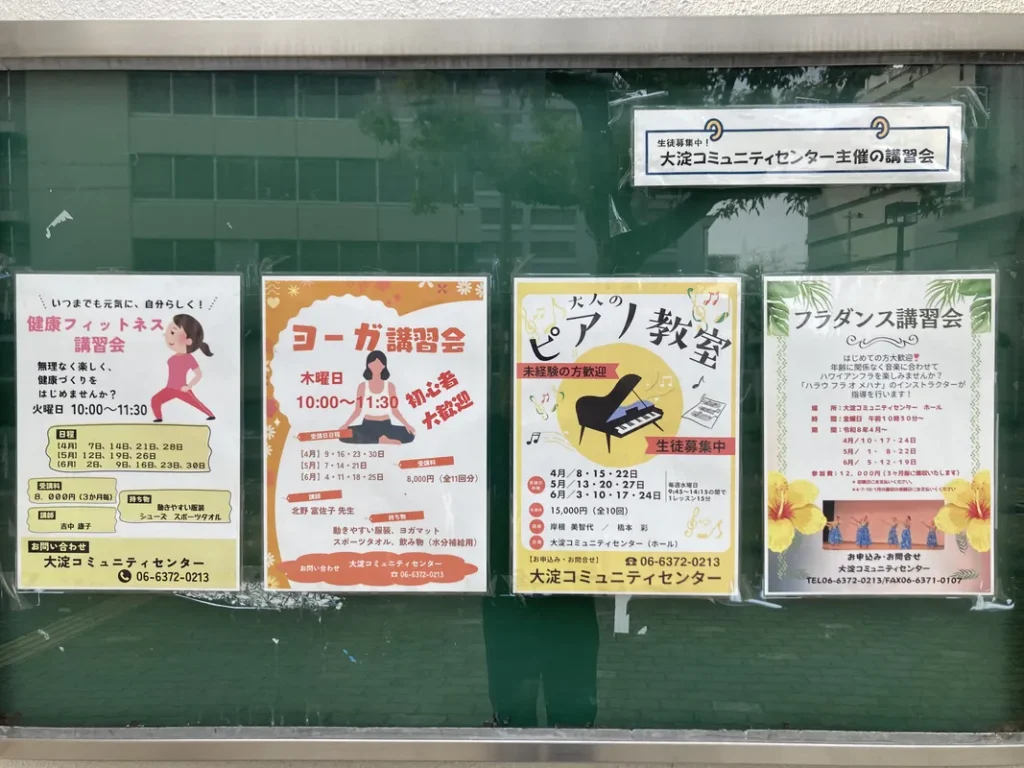 生徒募集中！
大淀コミュニティセンター主催の講習会
いつまでも元気に、自分らしく！
健康フィットネス
講習会
無理なく楽しく、
健康づくりを
はじめませんか？
火曜日 10:00〜11:30
日程
【4月】 7日、14日、21日、28日
【5月】 12日、19日、26日
【6月】 2日、 9日、16日、23日、30日
受講料
8,000円（3か月毎）
講師
吉中 康子
持ち物
動きやすい服装
シューズ スポーツタオル
お問い合わせ
大淀コミュニティセンター
06-6372-0213
ヨーガ講習会
木曜日
10:00〜11:30
初心者
大歓迎
受講日日程
【4月】9・16・23・30日
【5月】7・14・21日
【6月】4・11・18・25日
受講料
8,000円（全11回分）
講師
北野 富佐子 先生
持ち物
動きやすい服装、ヨガマット
スポーツタオル、飲み物（水分補給用）
お問い合わせ 大淀コミュニティセンター
☎ 06-6372-0213
大人の
ピアノ教室
未経験の方歓迎
生徒募集中
4月／8・15・22日
5月／13・20・27日
6月／3・10・17・24日
毎週水曜日
9:45〜14:15の間で
1レッスン15分
15,000円（全10回）
岸根 美智代 ／ 橋本 彩
大淀コミュニティセンター（ホール）
【お申込み・お問合せ】 ☎06-6372-0213
大淀コミュニティセンター
フラダンス講習会
はじめての方大歓迎
年齢に関係なく音楽に合わせて
ハワイアンフラを楽しみませんか？
「ハラウ フラ オ メハナ」のインストラクターが
指導を行います！
場 所：大淀コミュニティセンター ホール
時 間：金曜日 午前10時30分〜
期 間：令和8年4月〜
4月／10・17・24日
5月／ 1・ 8・22日
6月／ 5・12・19日
参加費：12，000円（3ヶ月毎に徴収いたします）
お申込み・お問合せ
大淀コミュニティセンター
TEL06-6372-0213/FAX06-6371-0107